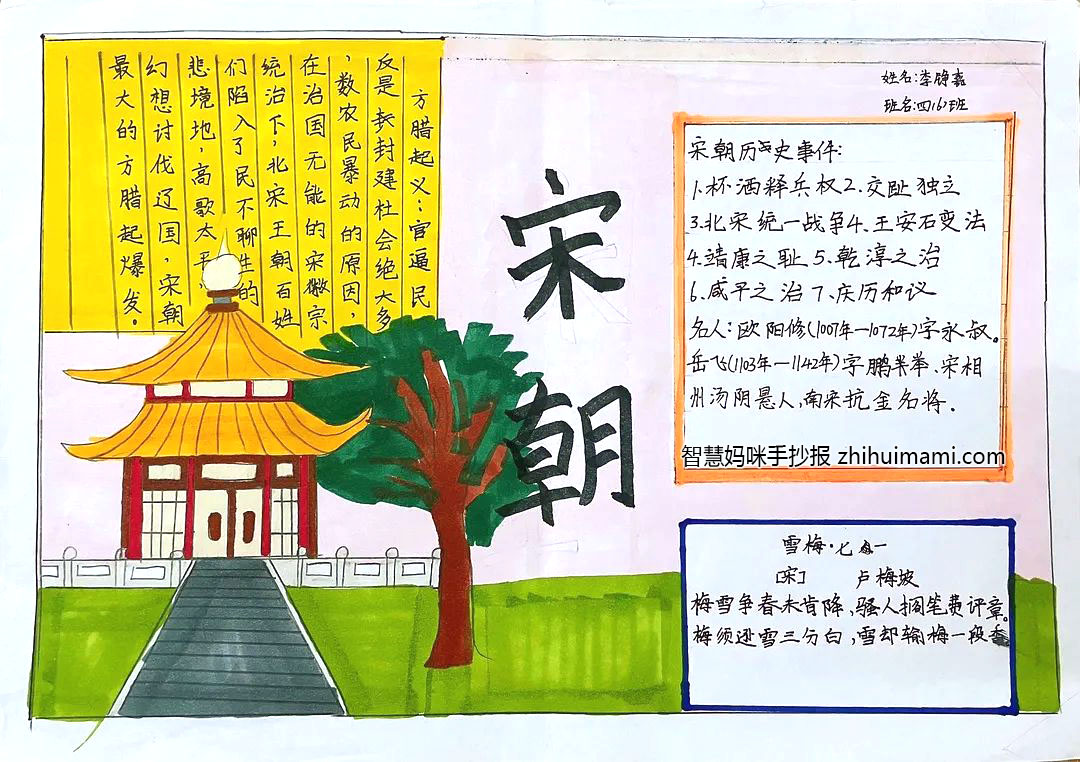 方腊起义:官逼民
反是封封建杜会绝大多
,数农民暴动的原因,
在治国无能的宋徽宗
统治下,北宋王朝百姓
们陷入了民不聊生的
悲境地,高歌太平,
幻想讨伐辽国,宋朝
最大的方腊起爆发。
宋朝
姓名:李
班名:四(6)班
宋朝历史事件:
1.杯洒释兵权2.交趾独立
3.北宋统一战争4.王安石变法
4.靖康之耻5.乾淳之治
6.咸平之治7.庆历和议
名人:欧阳修(1007年—1072年)字永叔。
岳飞(1103年—1142年)字鹏举、宋相
州汤阴县人,南宋抗金名将.
智慧妈咪手抄报 zhihuimami.com
雪梅·其一
[宋] 卢梅坡
梅雪争春未肯降、骚人搁笔费评章。
梅须逊雪三分白,雪却输梅一段香